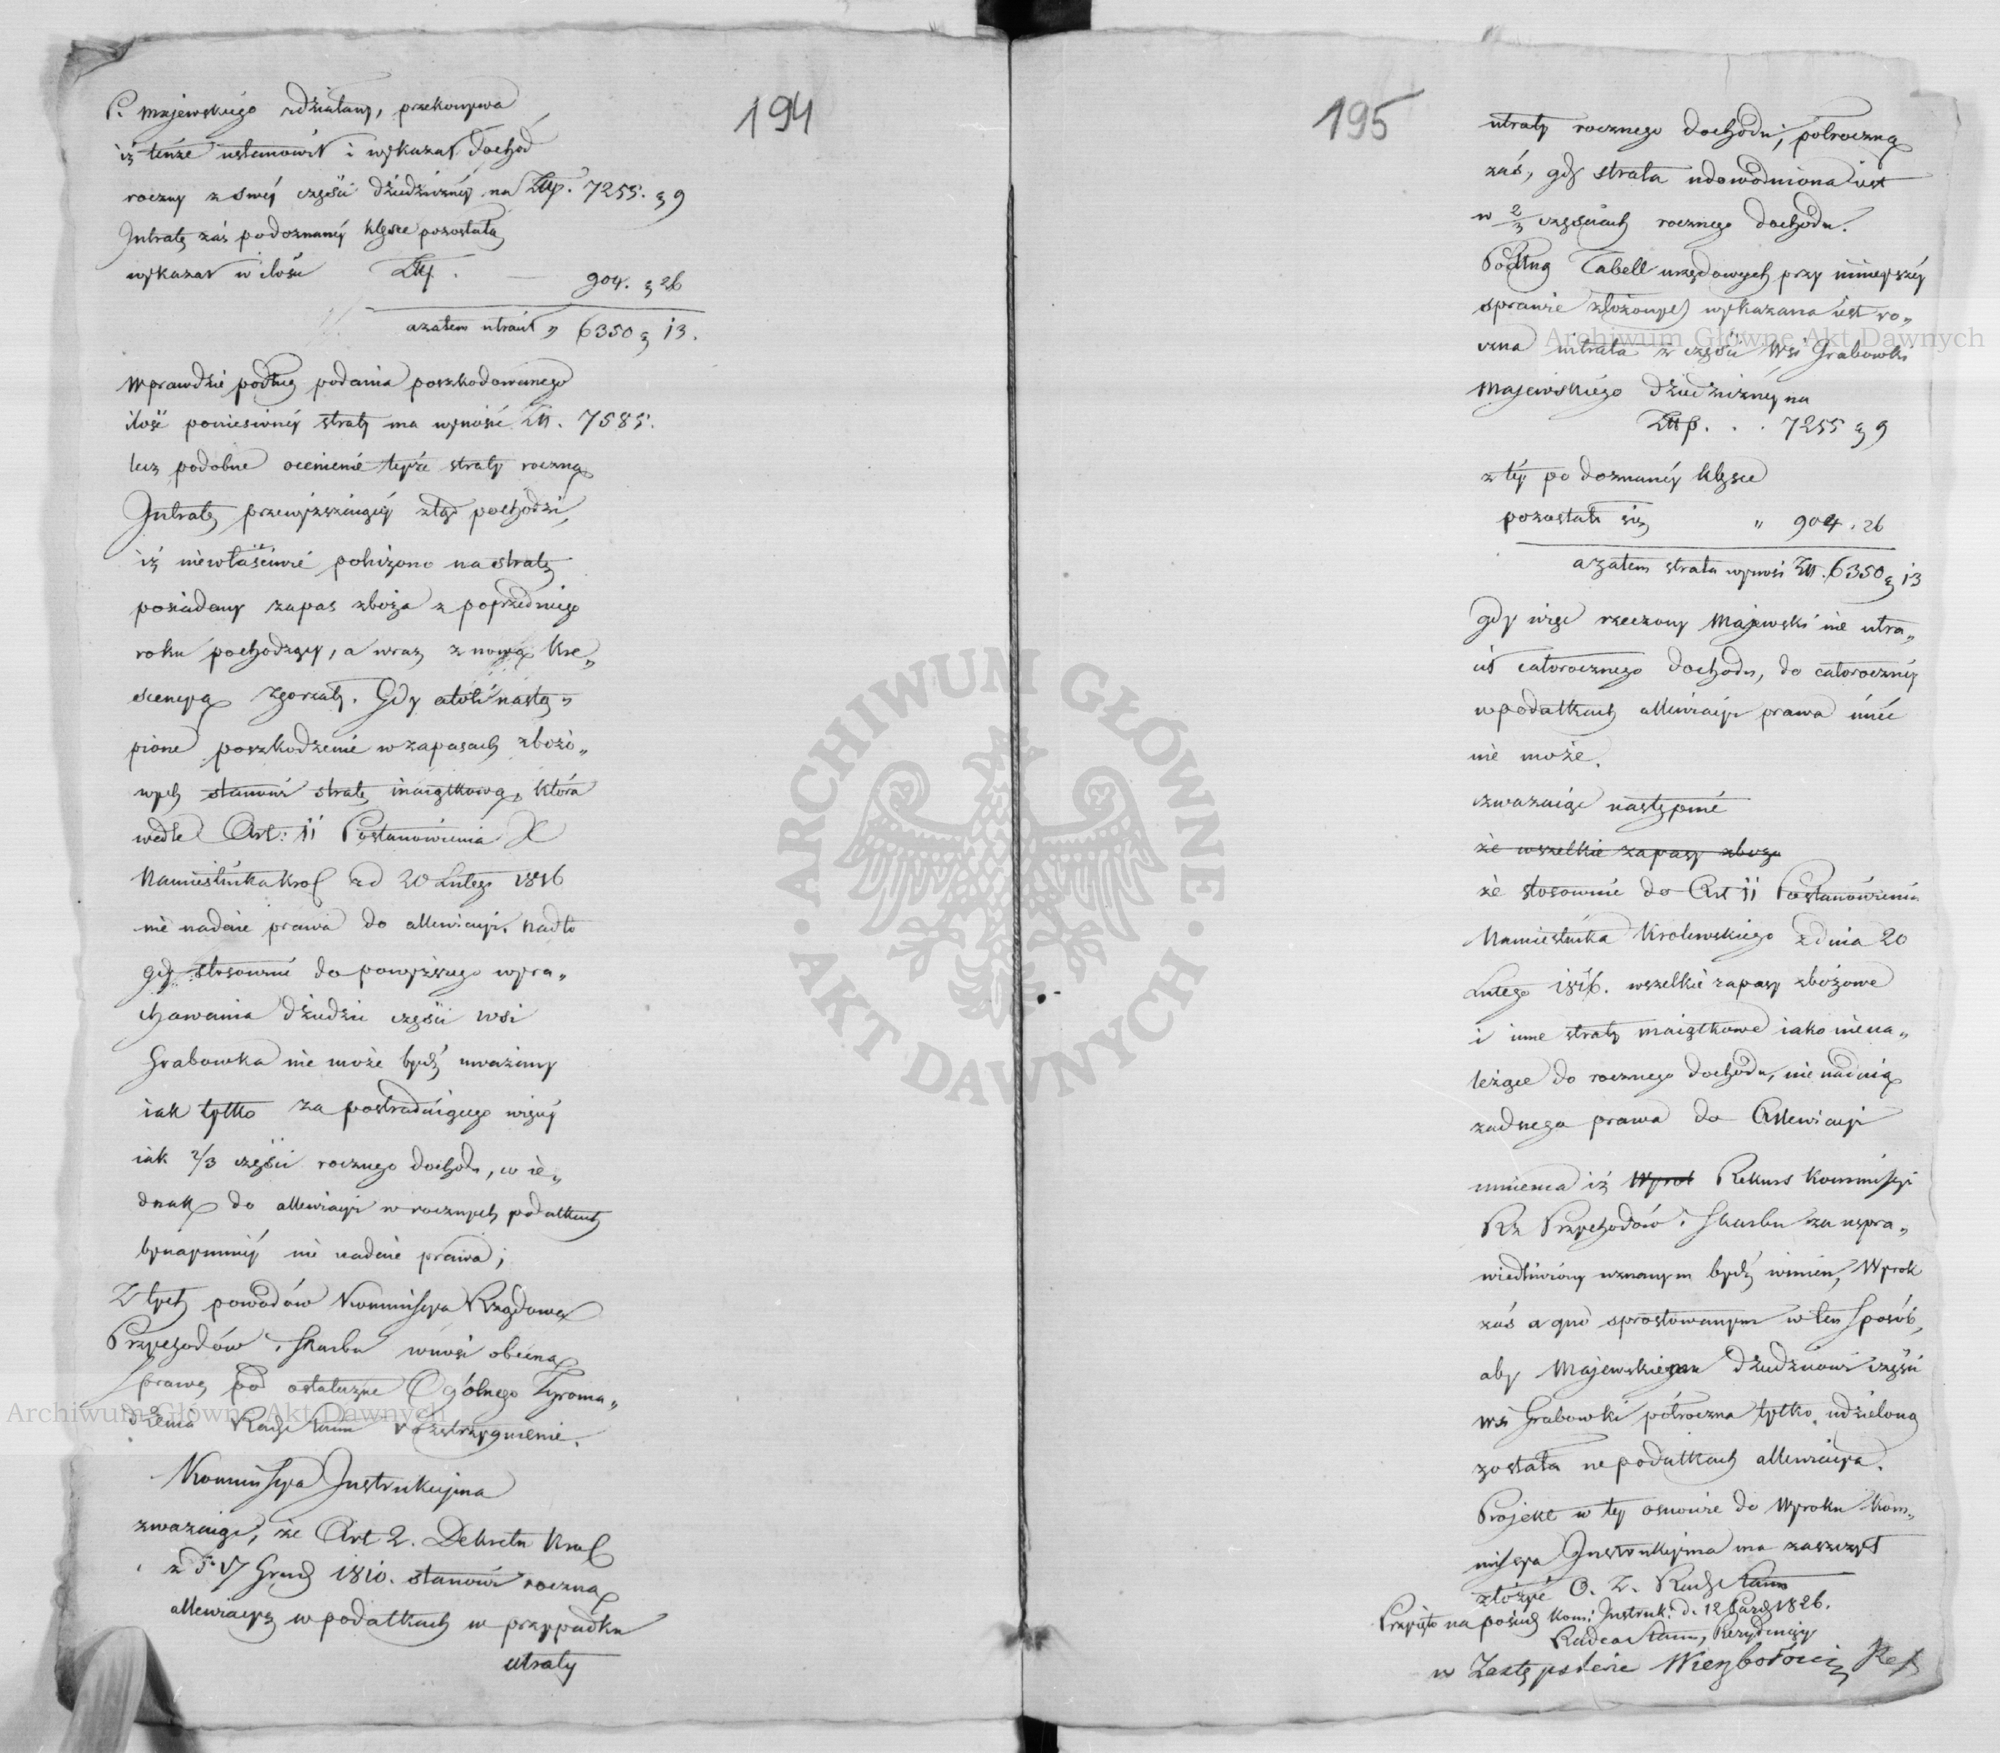 194
P. Majewskiego zdziałany, przekonywa
iż tenże ustanowił i wykazał dochód
roczny z swej części dziedzicznéj na Złtp. 7255. g 9
Intratę zaś po doznanéj klęsce pozostałą
wykazał w ilości Złtp. — 904. g 26
a zatem utracił „ 6350 g 13.
Wprawdzie podług podania poszkodowanego
ilość poniesionéj straty ma wynosić Złt. 7585.
lecz podobne ocenienie teyże straty roczną
Intratę przewyższaiącéy ztąd pochodzi,
iż niewłaściwie policzono na stratę
posiadany zapas zboża z poprzedniego
roku pochodzący, a wraz z nową kre„
scencyą zgorzały. Gdy atoli nastą„
pione poszkodzenie w zapasach zbożo„
wych stanowi stratę maiątkową, która
wedle Art: 11 Postanowienia X
Namiestnika Krol zd 20 Lutego 1816
nie nadaie prawa do allewiacyi. Nadto
gdy stosownie do powyższego wyra„
chowania dziedzic części wsi
Grabowka nie może bydź uważany
iak tylko za postradaiącego więcéj
iak 2/3 części rocznego dochodu, co ie„
dnak do allewiacyi w rocznych podatkach
bynaymniéj nie nadaie prawa;
Z tych powodów Kommissya Rządowa
Przychodów i Skarbu wnosi obecną
sprawę pod ostateczne Ogólnego Zgroma„
dzenia Rady Stanu rozstrzygnienie.
Kommissya Instrukcyina
zważaiąc, że Art 2. Dekretu Krol
z d. 17 Grud 1810. stanowi roczną
allewiacyą w podatkach w przypadku
utraty
195
utraty rocznego dochodu, półroczną
zaś, gdy strata udowodniona iest
w 2/3 częściach rocznego dochodu.
Podług Tabell urzędowych przy ninieyszéy
sprawie złożonych wykazana iest ro„
czna intrata z części Wsi Grabowki
Majewskiego dziedzicznéy na
Złtp. . . 7255 g 9
z téy po doznanéy klęsce
pozostało się „ 904. 26
a zatem strata wynosi Złt. 6350 g 13
gdy więc rzeczony Majewski nie utra„
cił całorocznego dochodu, do całorocznéy
w podatkach allewiacyi prawa mieć
nie może.
zważaiąc następnie
że wszelkie zapasy zboża
że stosownie do Art 11 Postanowienia
Namiestnika Krolewskiego z dnia 20
Lutego 1816. wszelkie zapasy zbożowe
i inne straty maiątkowe iako niena„
leżące do rocznego dochodu, nie nadaią
żadnego prawa do Allewiacyi
mniema iż Wyrok Rekurs Kommissyi
Rz Przychodów i Skarbu za uspra„
wiedliwiony uznanym bydź winien, Wyrok
zaś a quo sprostowanym w ten sposób,
aby Majewskiemu dziedzicowi części
wsi Grabowki półroczna tylko udzieloną
została w podatkach allewiacya.
Projekt w téy osnowie do Wyroku Kom„
missya Instrukcyina ma zaszczyt
złożyć O. Z. Rady Stanu
Przyięto na posied Kom: Instruk: d. 12 Paźd 1826.
Radca Stanu, Prezyduiący
w Zastępstwie Wierzbołowicz Ref